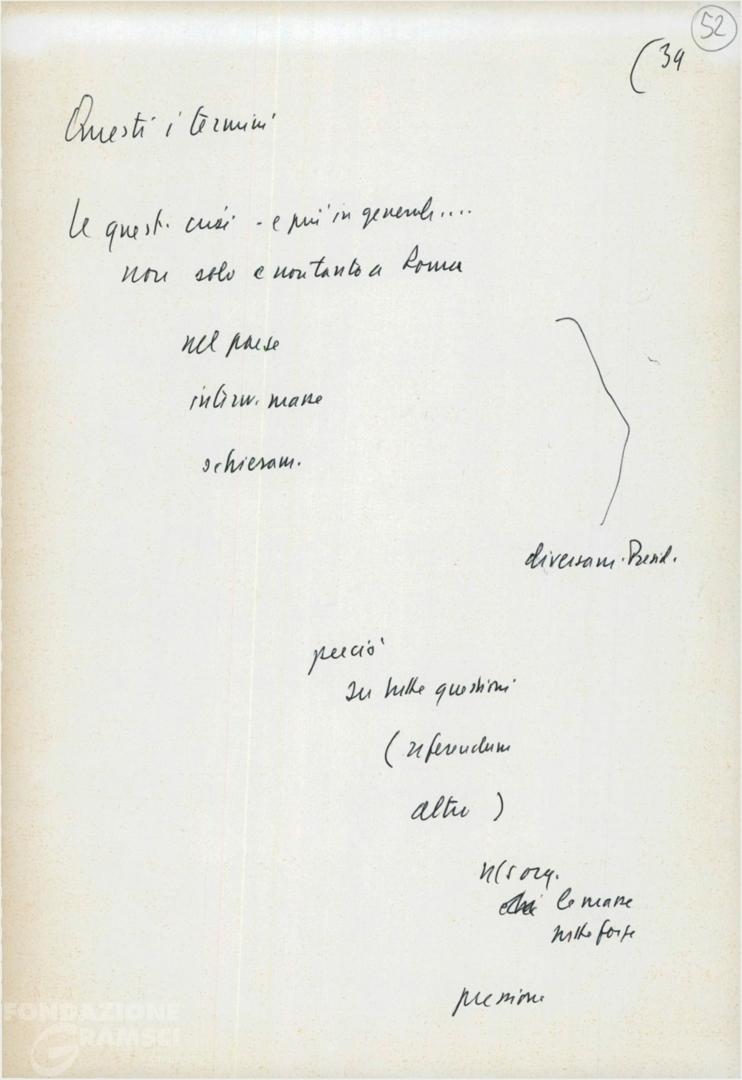 52
(34
Questi i termini
le quest. crisi - e più in generale....
non solo e non tanto a Roma
nel paese
interv. masse
schieram.
diversam. Presid.
perciò
su tutte questioni
(referendum
altre)
le masse
tutte forze
pressione
FONDAZIONE
GRAMSCI